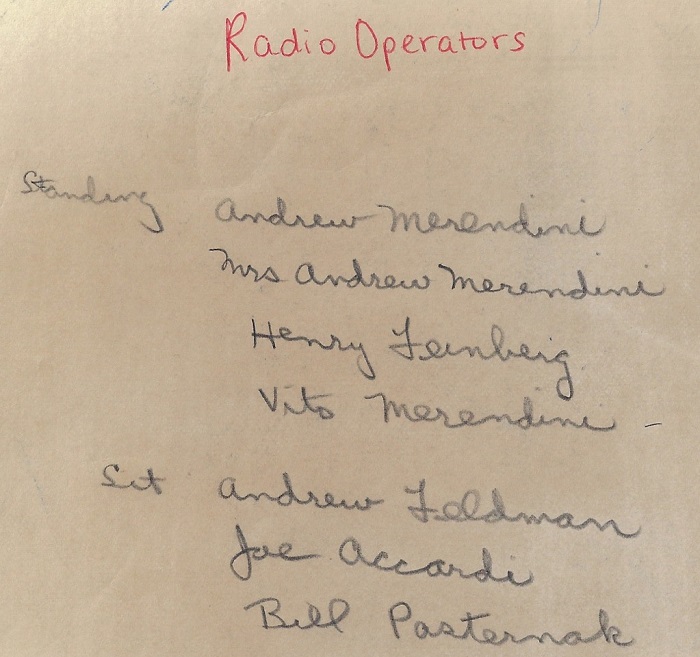 Radio Operators
Standing Andrew Merendini
Mrs Andrew Merendini
Henry Feinberg
Vito Merendini -
Sit Andrew Feldman
Joe Accardi
Bill Pasternak